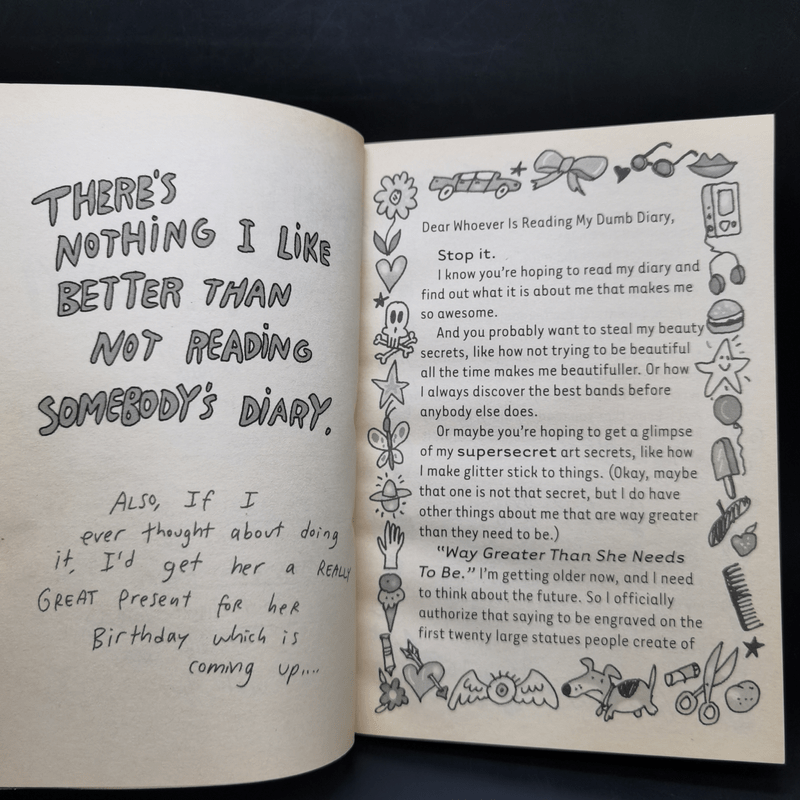 THERE'S
NOTHING I LIKE
BETTER THAN
NOT READING
SOMEBODY'S DIARY.
ALSO, If I
ever thought about doing
it, I'd get her a REALLY
GREAT Present foR heR
Birthday which is
coming up....
Dear Whoever Is Reading My Dumb Diary,
Stop it.
I know you're hoping to read my diary and
find out what it is about me that makes me
so awesome.
And you probably want to steal my beauty
secrets, like how not trying to be beautiful
all the time makes me beautifuller. Or how
I always discover the best bands before
anybody else does.
Or maybe you're hoping to get a glimpse
of my supersecret art secrets, like how
I make glitter stick to things. (Okay, maybe
that one is not that secret, but I do have
other things about me that are way greater
than they need to be.)
"Way Greater Than She Needs
To Be." I'm getting older now, and I need
to think about the future. So I officially
authorize that saying to be engraved on the
first twenty large statues people create of